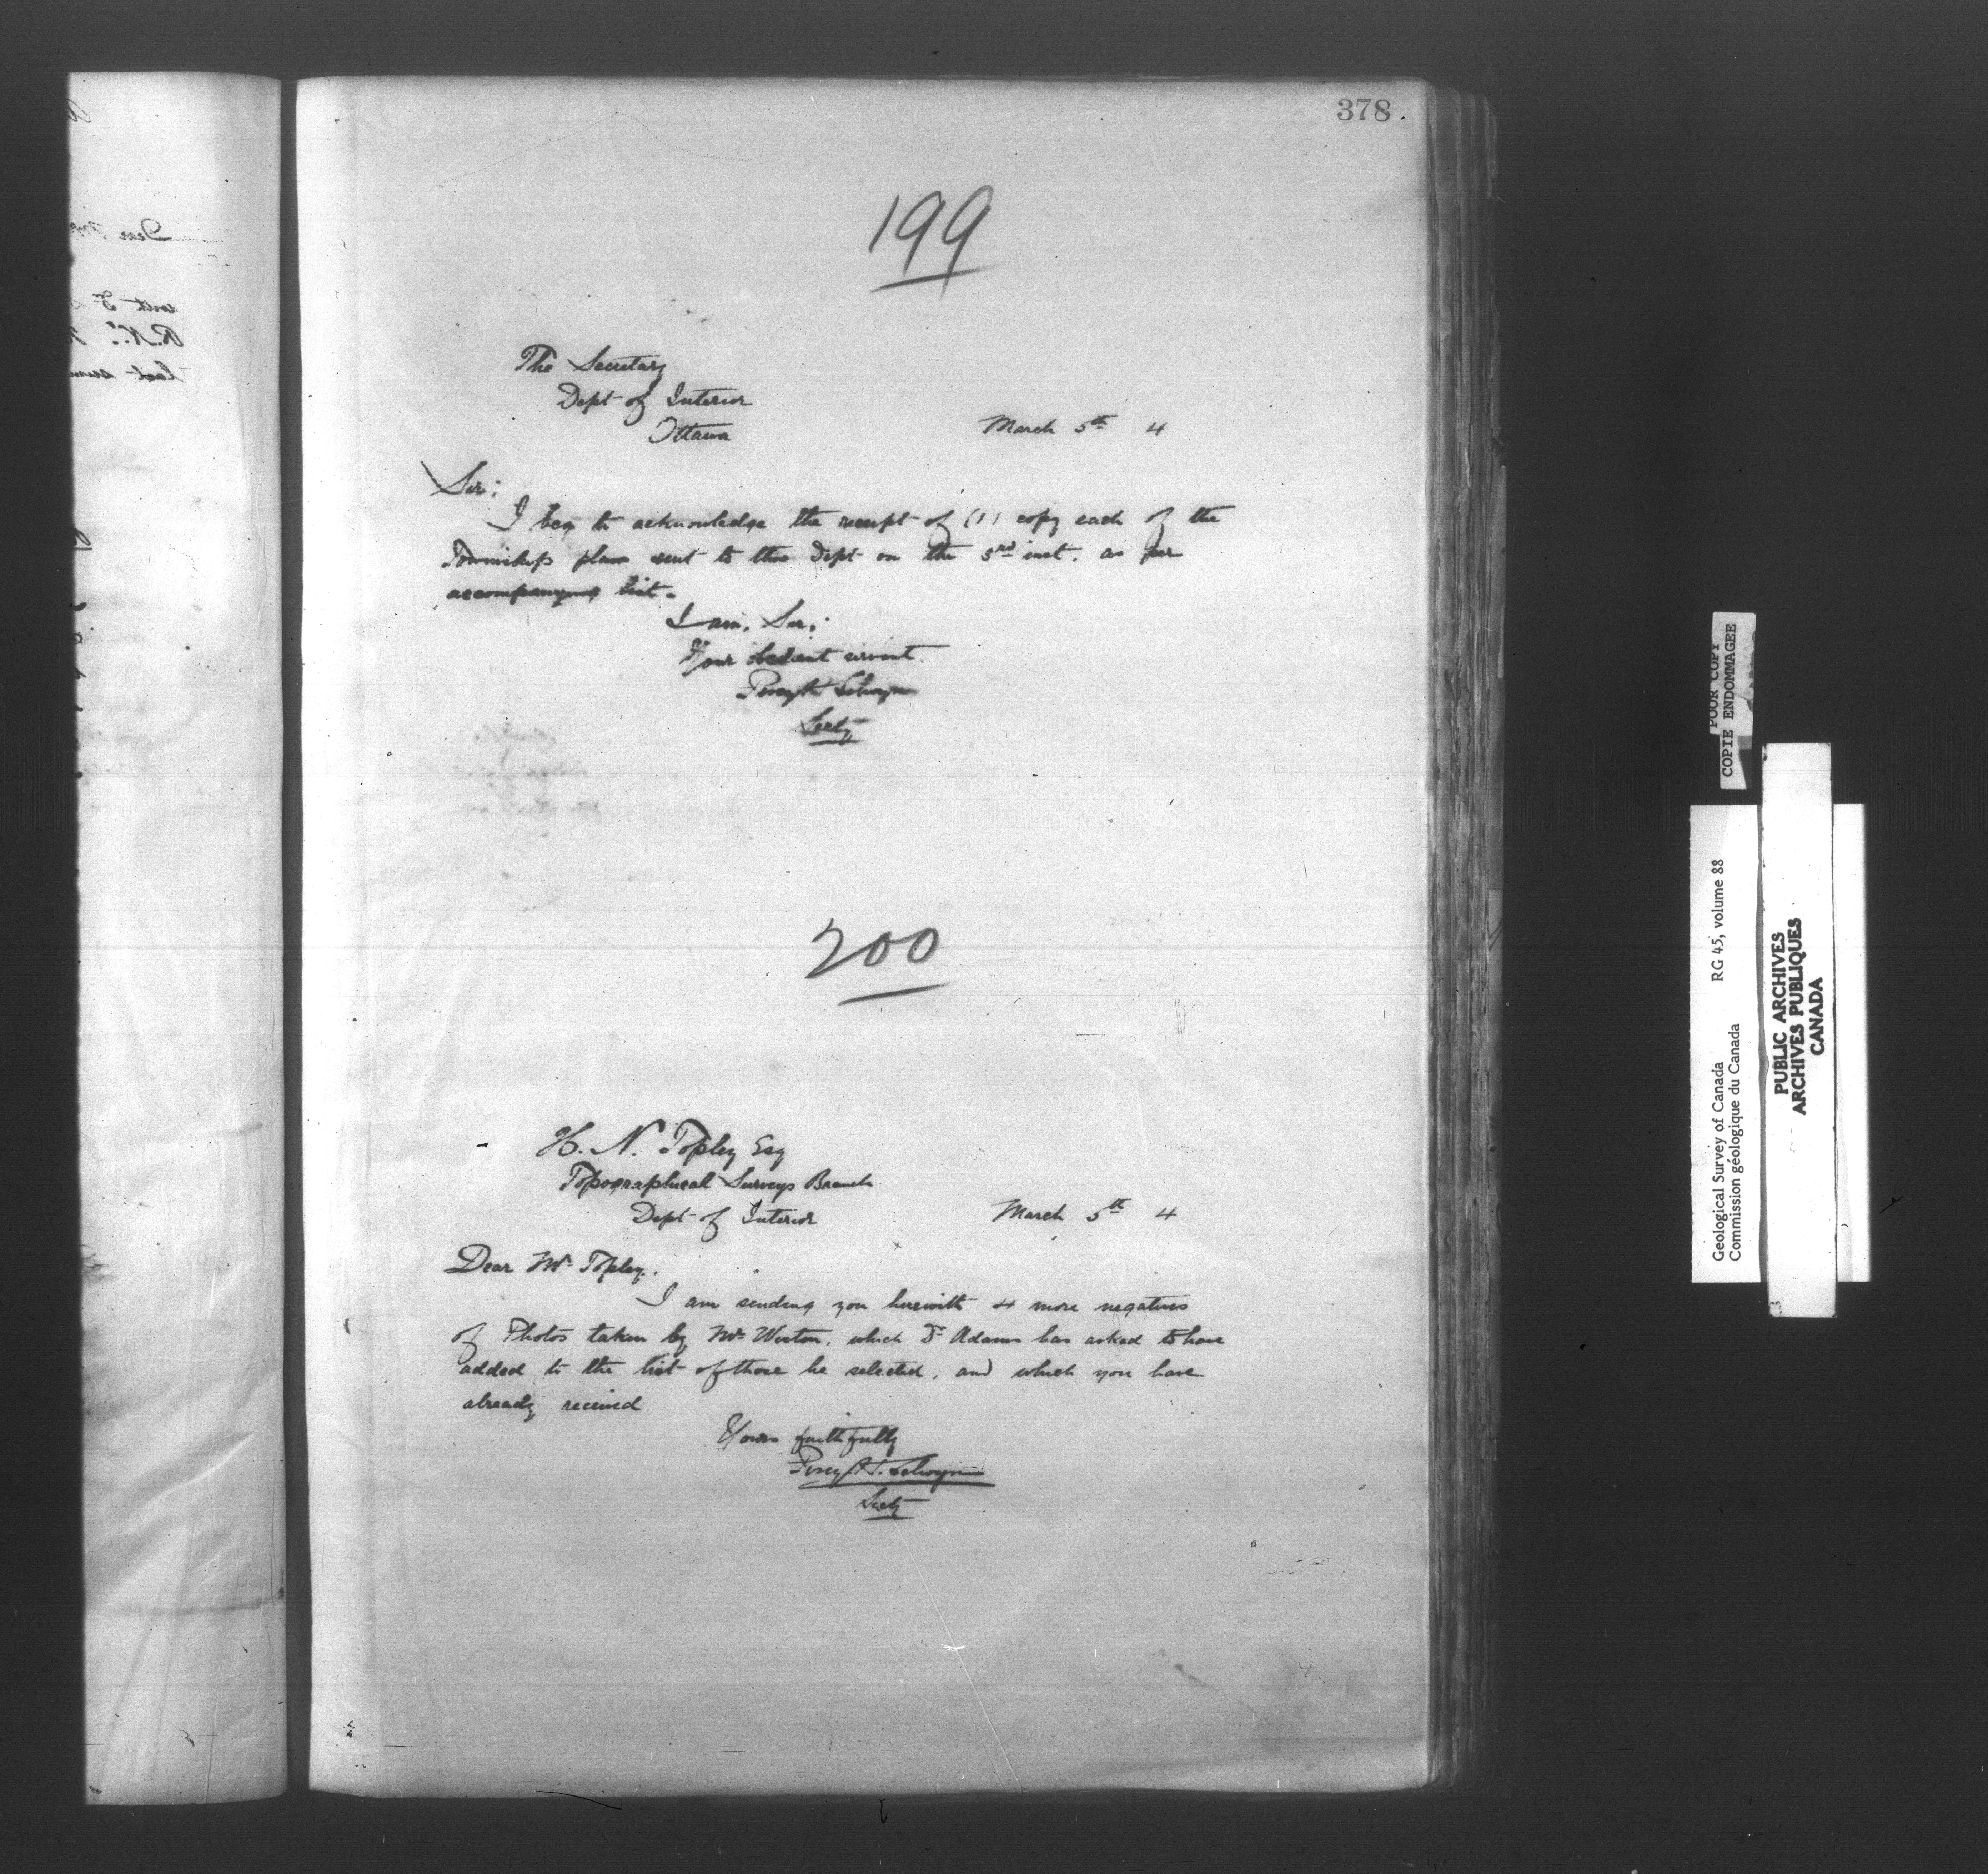 378
199
The Secretary
Dept of Interior
Ottawa
March 5th 4
Sir:
I beg to acknowledge the receipt of (1) copy each of the
Townships plans sent to this Dept on the 3rd inst. as per
accompanying list.
I am, Sir:
Your obedient servant.
Percy H Selwyn
Secty
200
H. N. Topley Esq
Topographical Surveys Branch
Dept of Interior
March 5th 4
Dear Mr Topley.
I am sending you herewith 4 more negatives
of Photos taken by Mr Weston, which Dr Adams has asked to have
added to the list of those he selected, and which you have
already received
Yours faithfully
Percy H. Selwyn
Secty
POOR COPY
COPIE ENDOMMAGEE
Geological Survey of Canada RG 45, volume 88
Commission géologique du Canada
PUBLIC ARCHIVES
ARCHIVES PUBLIQUES
CANADA